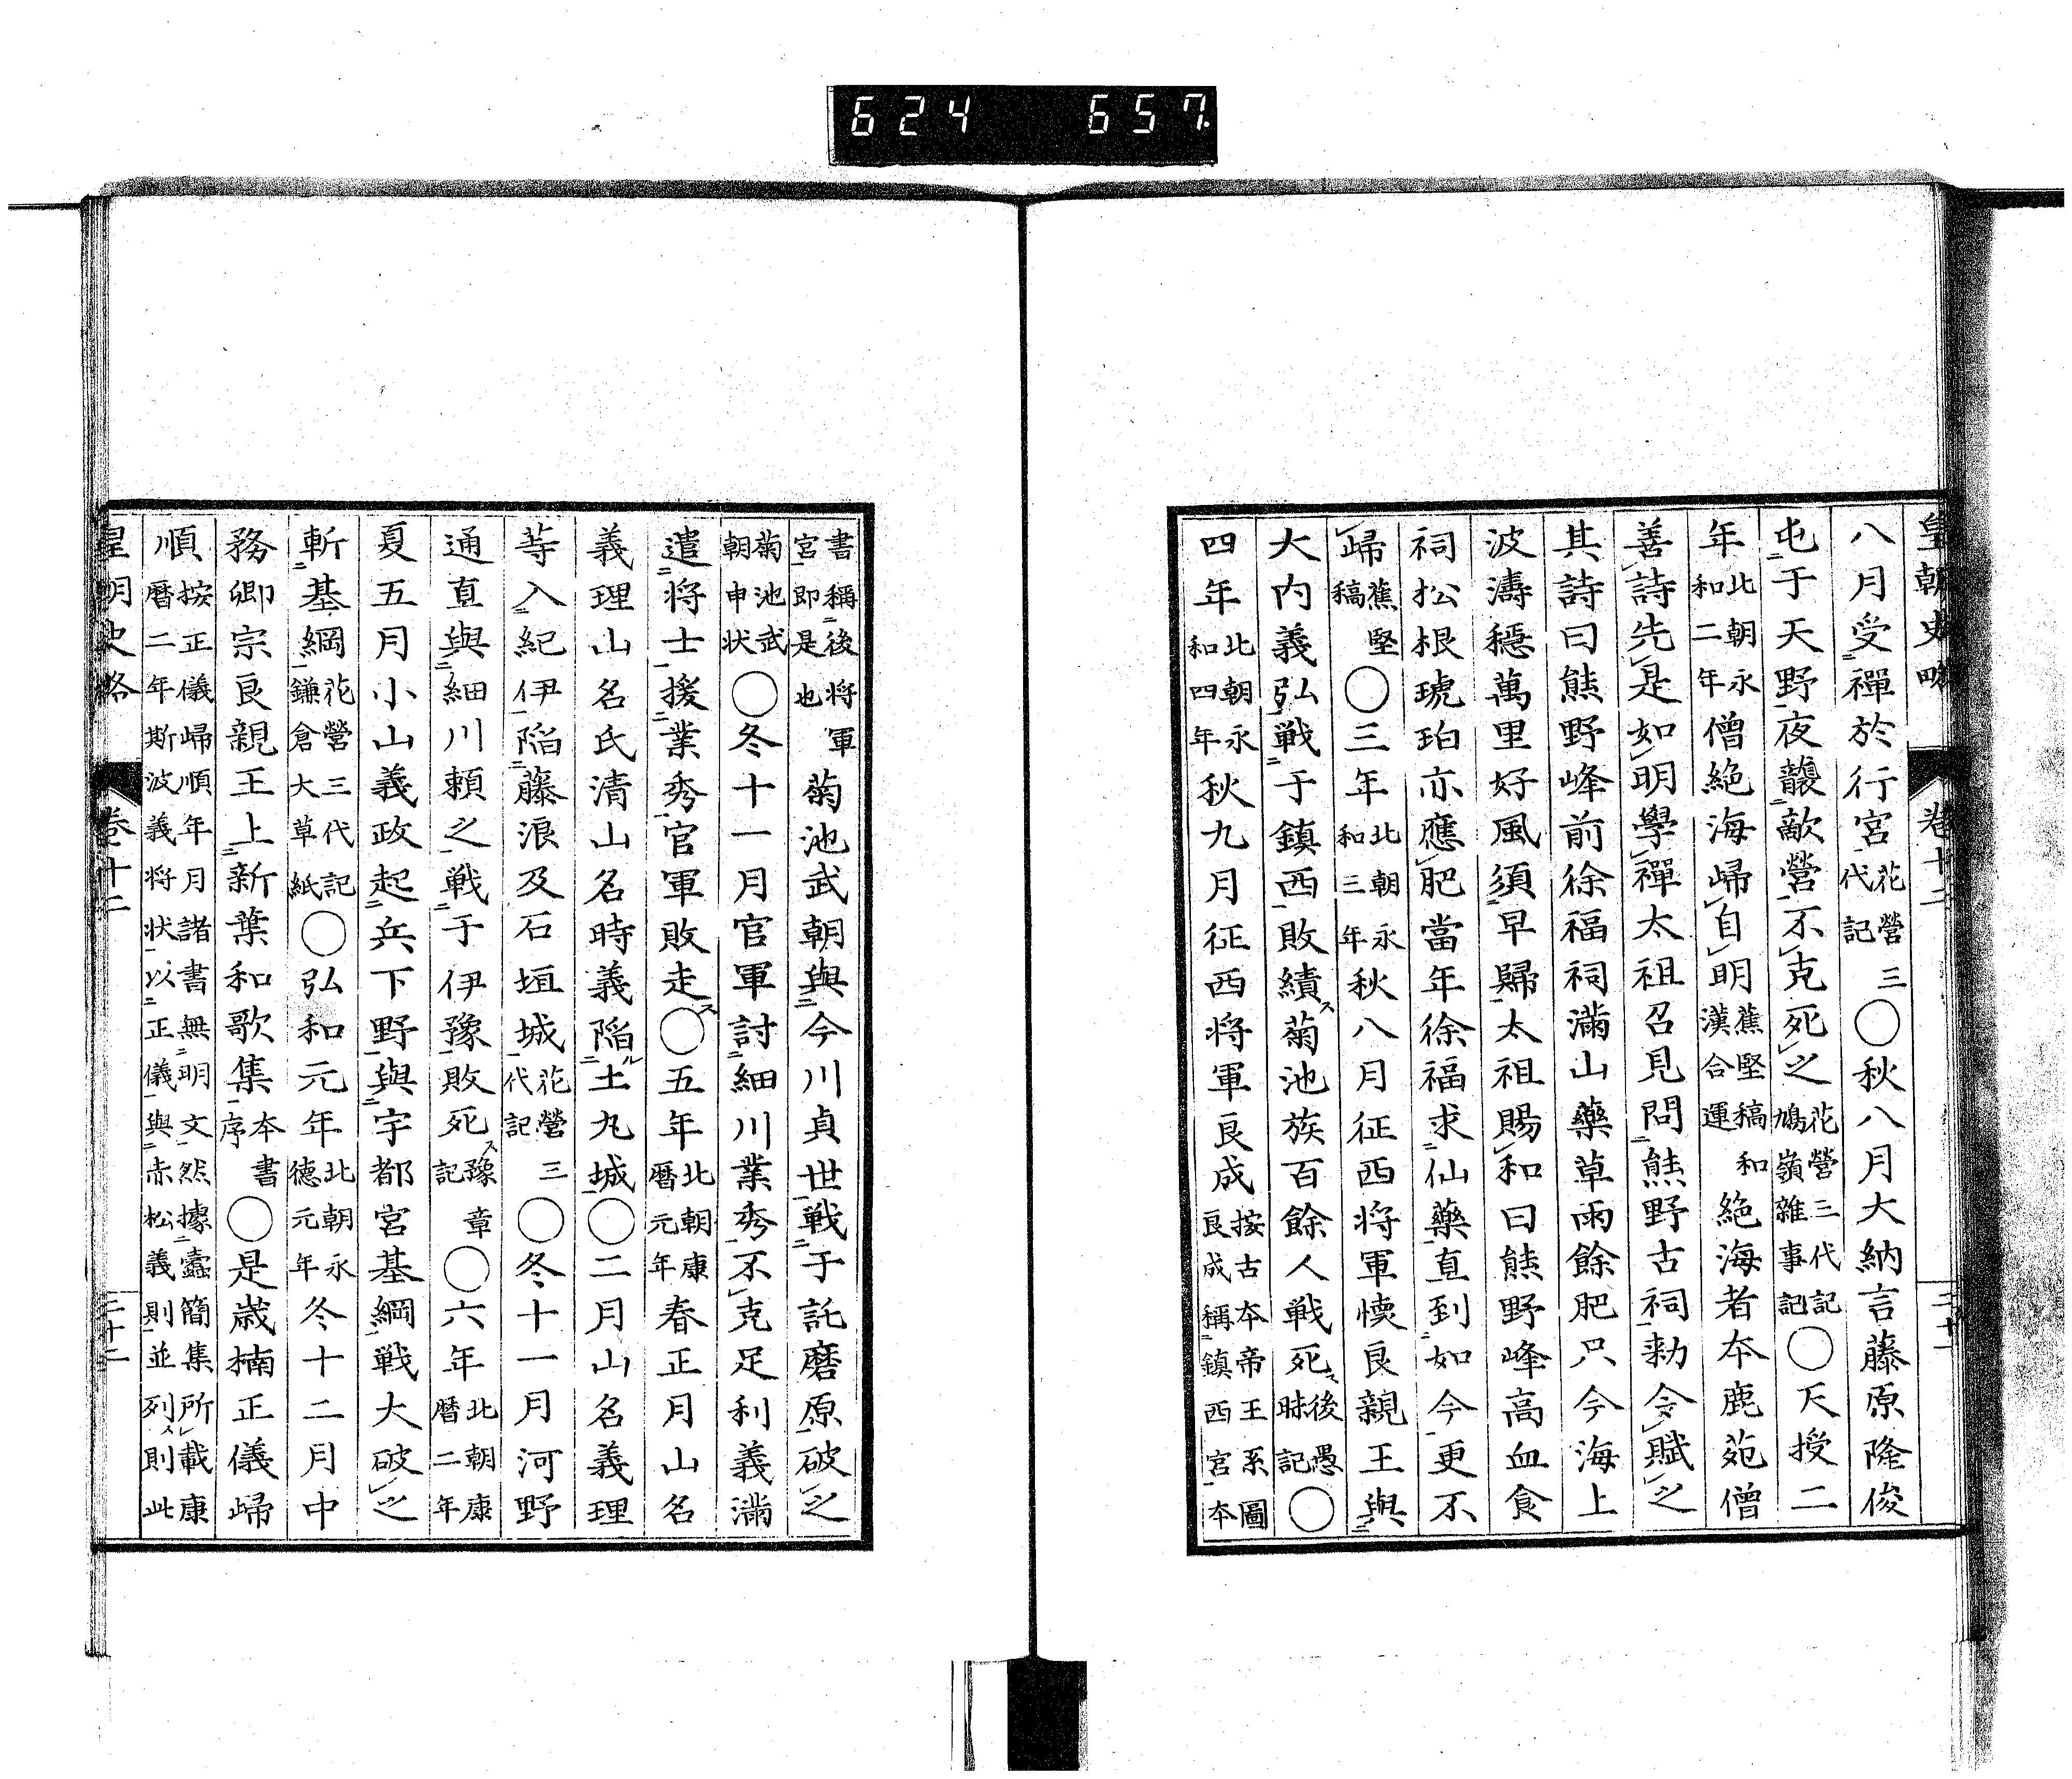 624 657
皇朝史略 卷十二 三十一
八月受禪於行宮花營三代記〇秋八月大納言藤原隆俊
屯于天野夜襲敵營不克死之花營三代記鳩嶺雜事記〇天授二
年北朝永和二年僧絶海歸自明蕉堅稿和漢合運絶海者本鹿苑僧
善詩先是如明學禪太祖召見問熊野古祠勅令賦之
其詩曰熊野峰前徐福祠滿山藥草雨餘肥只今海上
波濤穩萬里好風須早歸太祖賜和曰熊野峰高血食
祠松根琥珀亦應肥當年徐福求仙藥直到如今更不
歸蕉堅稿〇三年北朝永和三年秋八月征西將軍懷良親王與
大内義弘戰于鎮西敗績菊池族百餘人戰死後愚昧記〇
四年北朝永和四年秋九月征西將軍良成按古本帝王系圖良成稱鎮西宮一本
書稱後將軍宮即是也菊池武朝與今川貞世戰于託磨原破之
菊池武朝申状〇冬十一月官軍討細川業秀不克足利義滿
遣將士援業秀官軍敗走〇五年北朝康暦元年春正月山名
義理山名氏清山名時義陷土丸城〇二月山名義理
等入紀伊陷藤浪及石垣城花營三代記〇冬十一月河野
通直與細川頼之戰于伊豫敗死豫章記〇六年北朝康暦二年
夏五月小山義政起兵下野與宇都宮基綱戰大破之
斬基綱花營三代記鎌倉大草紙〇弘和元年北朝永德元年冬十二月中
務卿宗良親王上新葉和歌集本書序〇是歳楠正儀歸
順按正儀歸順年月諸書無明文然據蠧簡集所載康暦二年斯波義將状以正儀與赤松義則並列則此
皇朝史略 卷十二 三十二